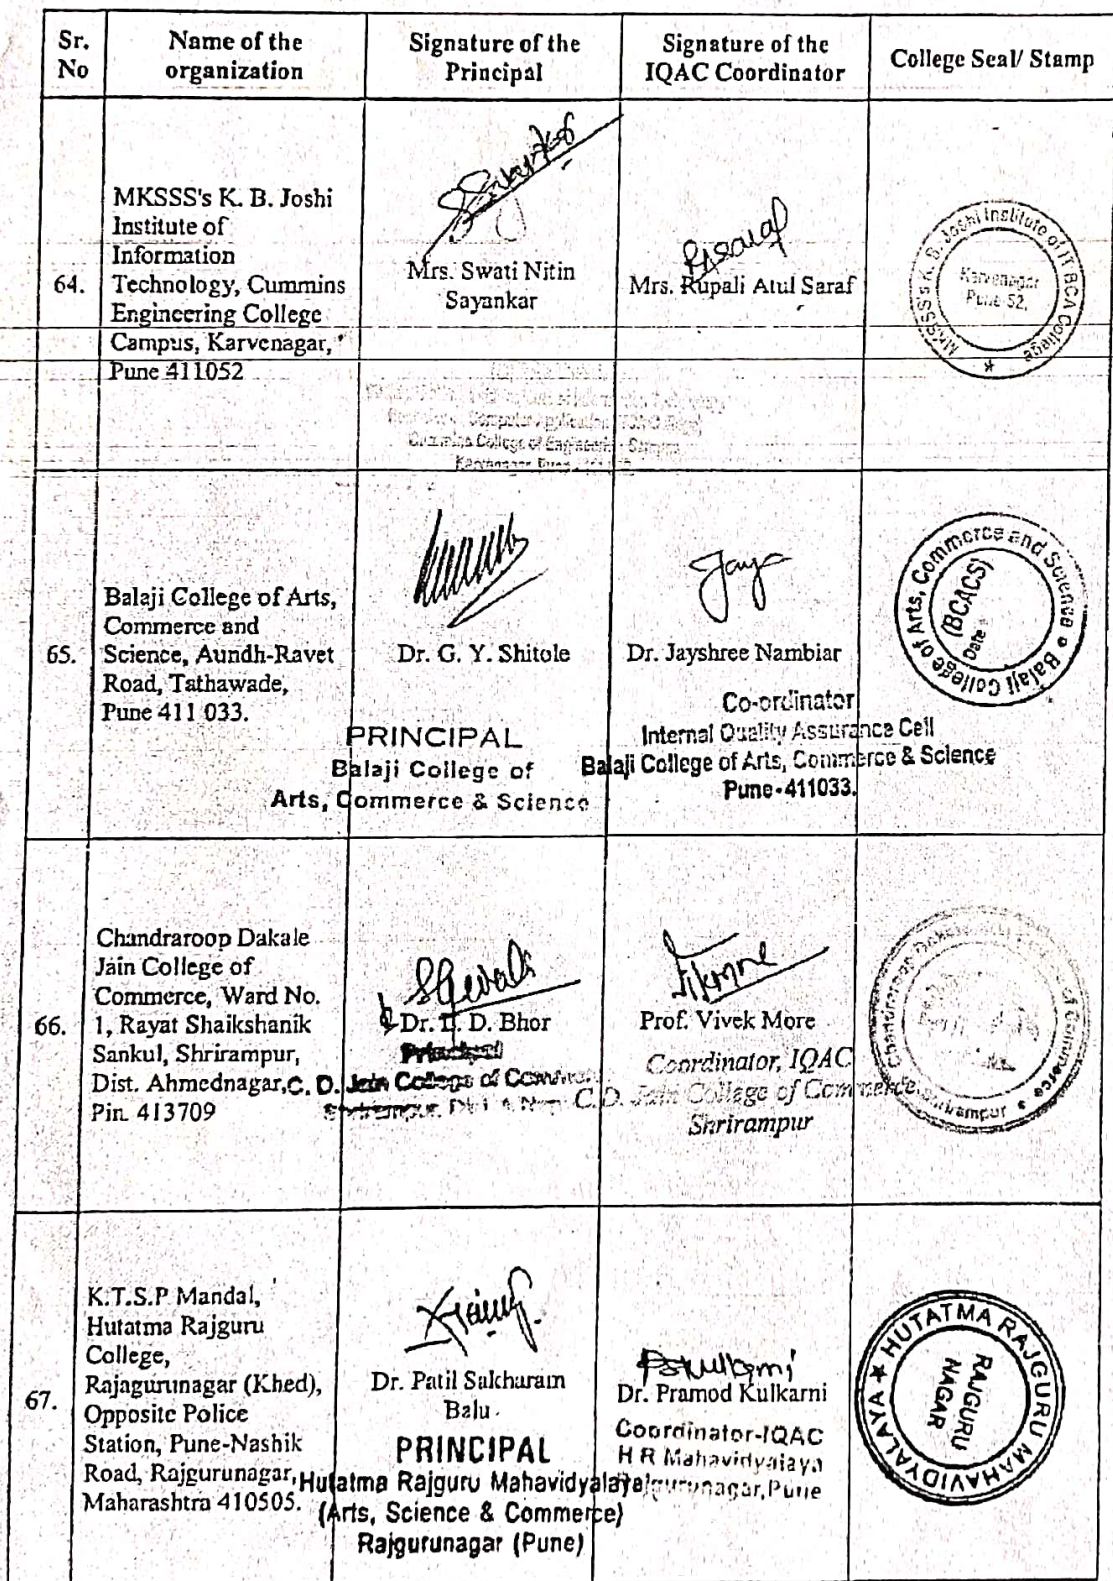 Sr. No
Name of the organization
Signature of the Principal
Signature of the IQAC Coordinator
College Seal/ Stamp
64.
MKSSS's K. B. Joshi
Institute of
Information
Technology, Cummins
Engineering College
Campus, Karvenagar,
Pune 411052
Mrs. Swati Nitin
Sayankar
RASaraf
Mrs. Rupali Atul Saraf
MKSSS's K. B. Joshi Institute of IT BCA College
Karvenagar
Pune-52.
65.
Balaji College of Arts,
Commerce and
Science, Aundh-Ravet
Road, Tathawade,
Pune 411 033.
Dr. G. Y. Shitole
PRINCIPAL
Balaji College of
Arts, Commerce & Science
Jaya
Dr. Jayshree Nambiar
Co-ordinator
Internal Quality Assurance Cell
Balaji College of Arts, Commerce & Science
Pune-411033.
Balaji College of Arts, Commerce and Science
(BCACS)
Date
66.
Chandraroop Dakale
Jain College of
Commerce, Ward No.
1, Rayat Shaikshanik
Sankul, Shrirampur,
Dist. Ahmednagar,
Pin. 413709
Dr. L. D. Bhor
Principal
C. D. Jain College of Commerce
Prof. Vivek More
Coordinator, IQAC
C.D. Jain College of Commerce
Shrirampur
67.
K.T.S.P Mandal,
Hutatma Rajguru
College,
Rajagurunagar (Khed),
Opposite Police
Station, Pune-Nashik
Road, Rajgurunagar,
Maharashtra 410505.
Dr. Patil Sakharam
Balu
PRINCIPAL
Hutatma Rajguru Mahavidyalaya
(Arts, Science & Commerce)
Rajgurunagar (Pune)
Pskulkarni
Dr. Pramod Kulkarni
Coordinator-IQAC
H R Mahavidyalaya
Rajgurunagar, Pune
HUTATMA RAJGURU MAHAVIDYALAYA
RAJGURU
NAGAR